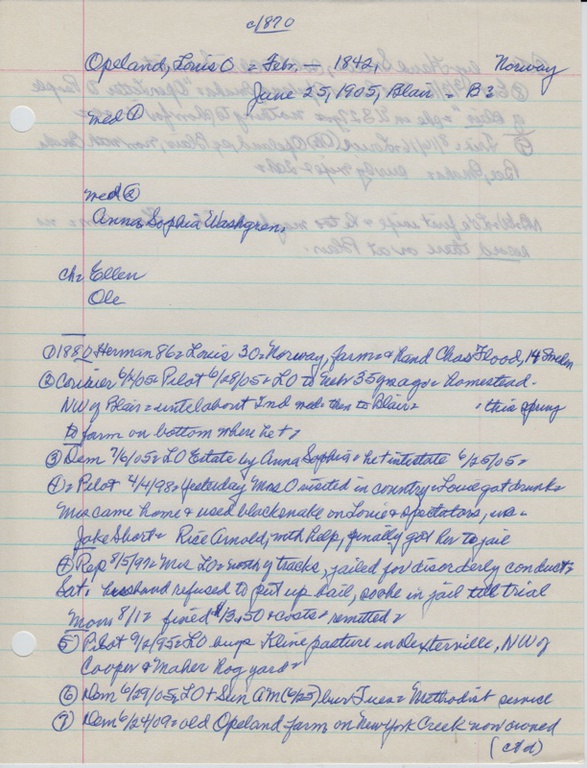 c/1870
Opeland, Louis O = Feb, — 1842, Norway
June 25, 1905, Blair = B =
med ①
med ②
Anna Sophia Washgren,
ch = Ellen
Ole
① 1880 Herman 86 = Louis 30 = Norway, farm = & hand Chas Flood, 14
② Courier 6/ /05 = Pilot 6/28/05 = LO to Nebr 35 yrs ago = homestead =
NW of Blair = until about 2nd med = then to Blair = this spring
to farm on bottom where he +,
③ Dem 7/6/05 = LO Estate by Anna Sophia = he + intestate 6/25/05 =
④ = Pilot 4/4/98 = Yesterday Mrs O visited in country = Louie got drunk =
Mrs came home & used blacksnake on Louie & spectators,
Jake Short = Rise Arnold, with help, finally got her to jail
④ Rep 8/5/99 = Mrs LO = north of tracks, jailed for disorderly conduct =
Sat = husband refused to put up bail, so she in jail till trial
Morn 8/1 = fined $13.50 + costs = remitted =
⑤ Pilot 9/ /95 = LO buys Kline pasture in Dexterville, NW of
Cooper & Maher hog yard =
⑥ Dem 6/29/05 = LO + Sun AM (6/25) bur Tues = Methodist service
⑦ Dem 6/24/09 = old Opeland farm on New York Creek now owned
(ctd)